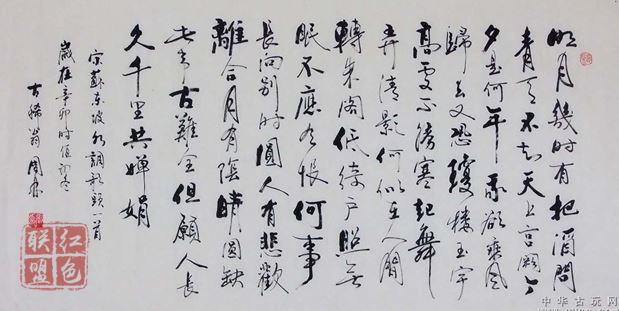 明月幾時有把酒問
青天不知天上宮闕今
夕是何年我欲乘風
歸去又恐瓊樓玉宇
高處不勝寒起舞
弄清影何似在人間
轉朱閣低綺戶照無
眠不應有恨何事
長向別時圓人有悲歡
離合月有陰晴圓缺
此事古難全但願人長
久千里共嬋娟
宋蘇東坡水調歌頭一首
歲在辛卯時值
古稀翁周
红色
联盟
中华古玩网